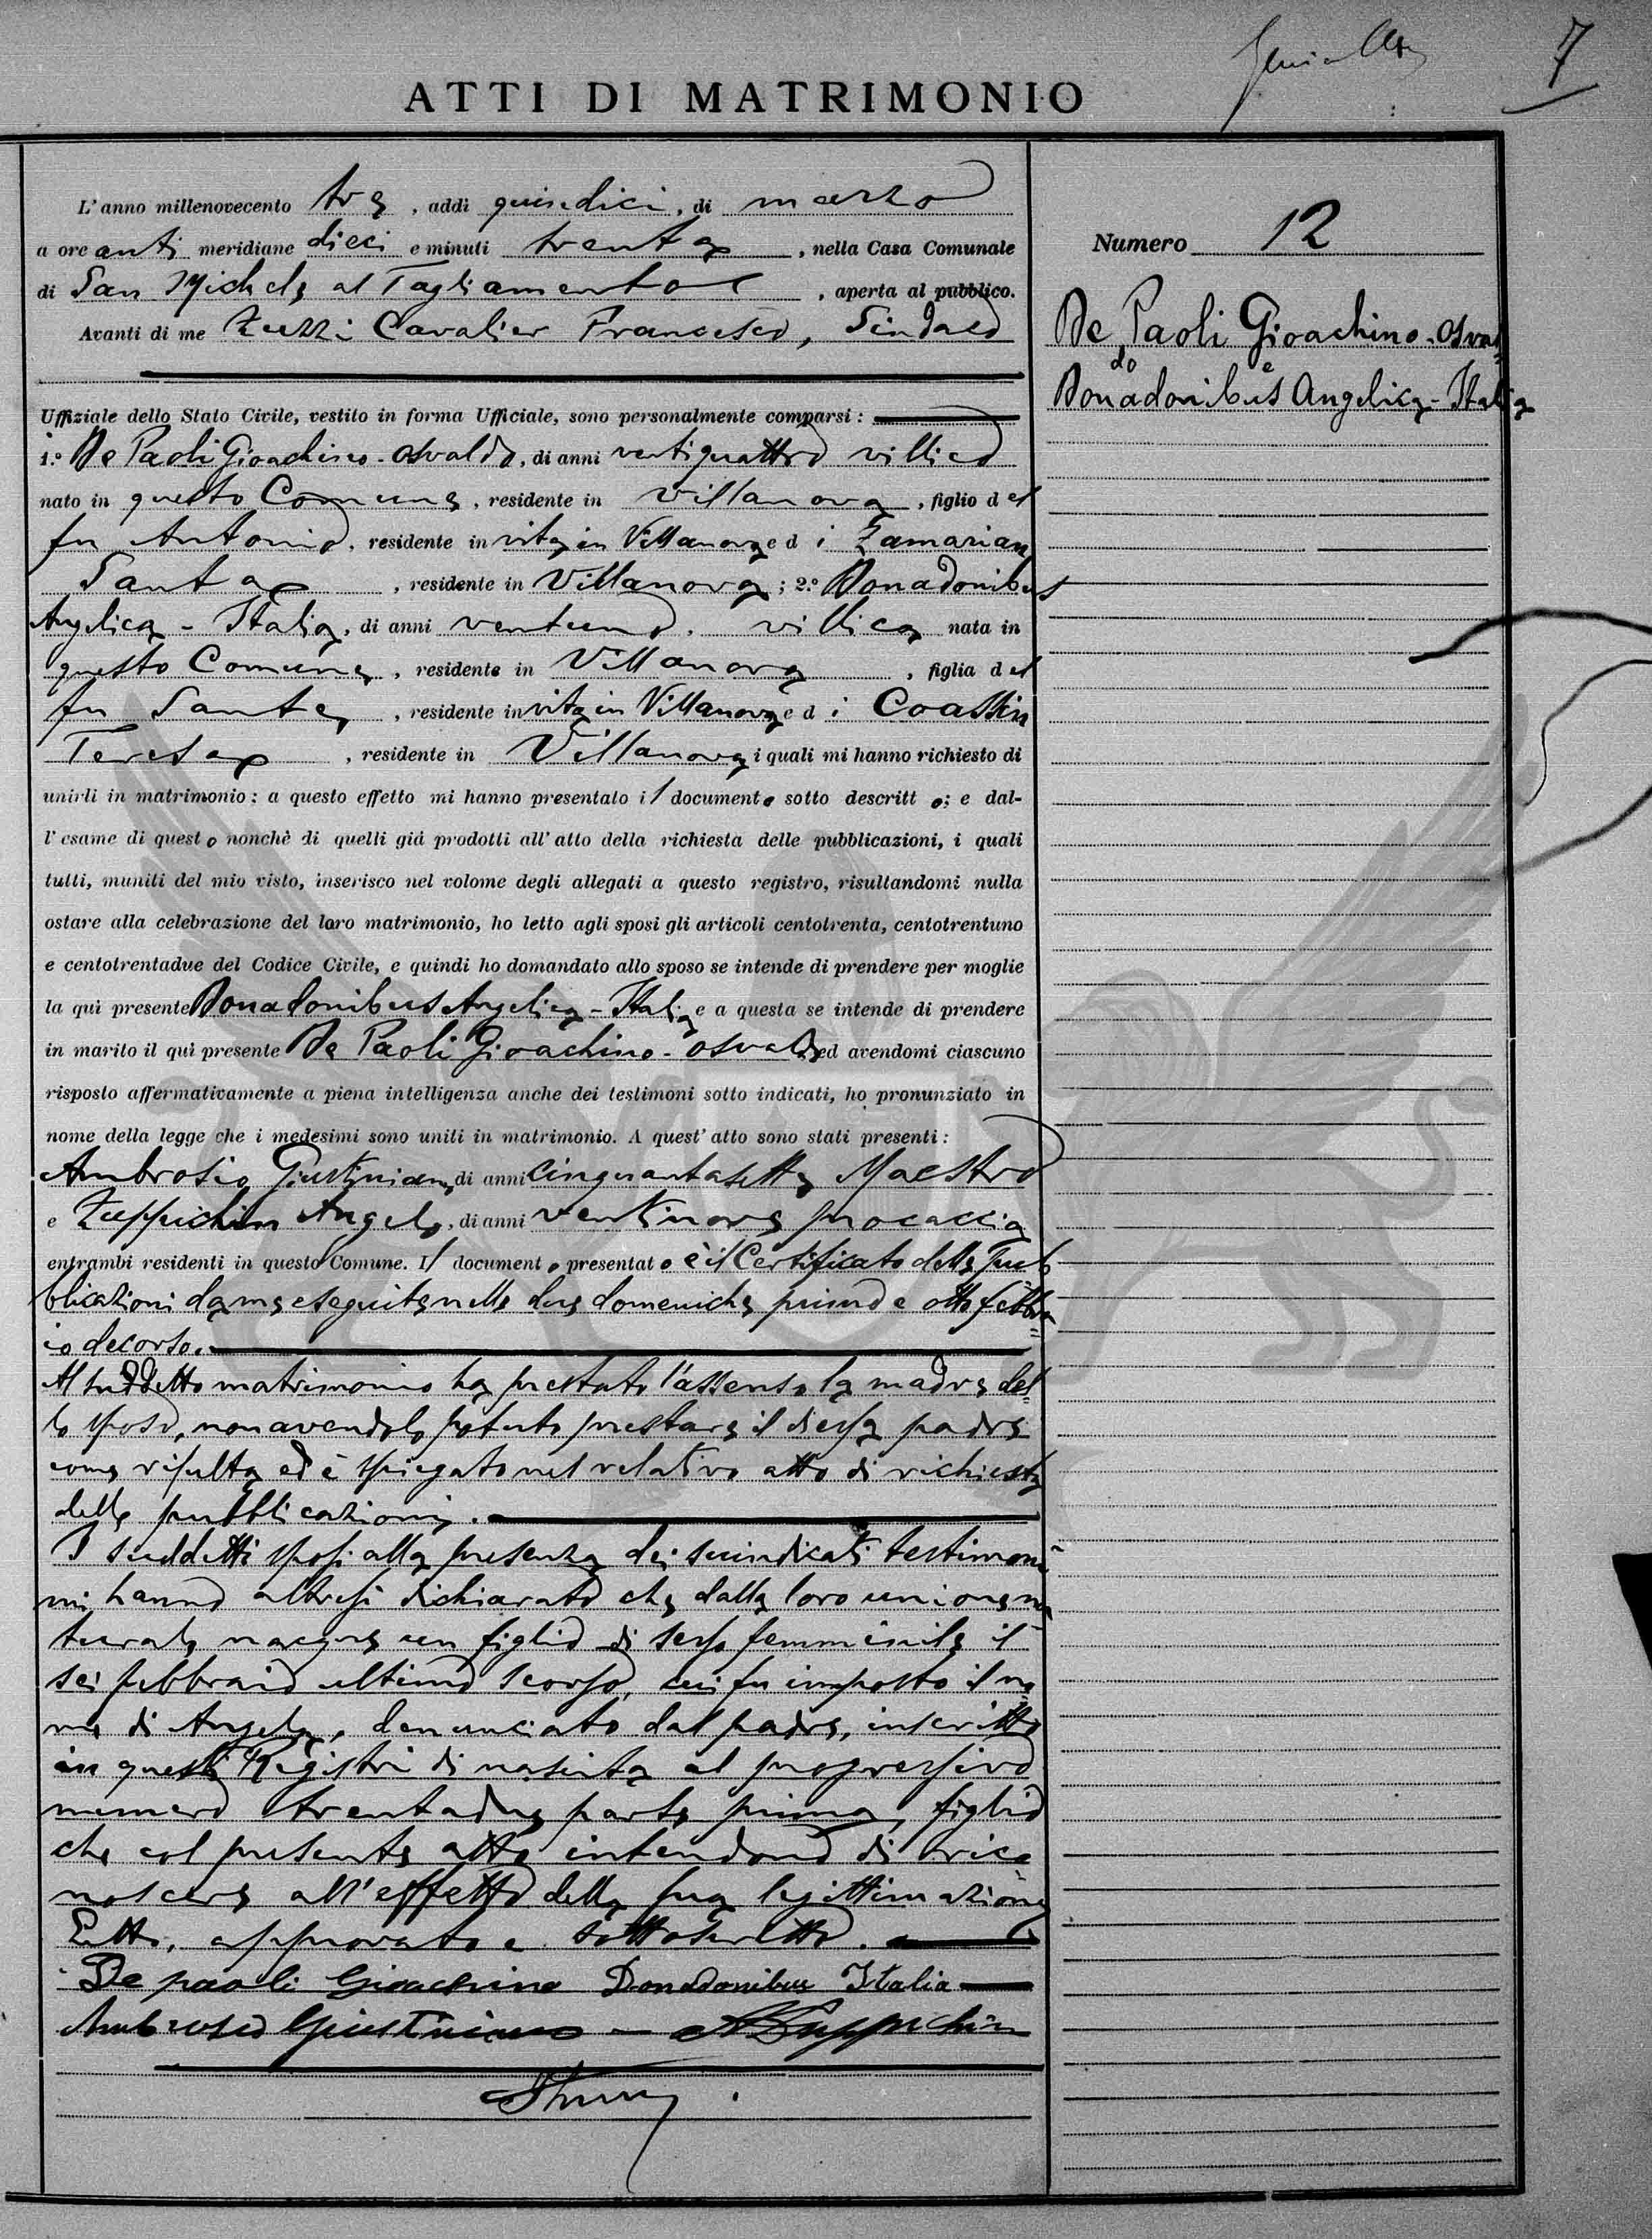 7
ATTI DI MATRIMONIO
L'anno millenovecento tre, addì quindici, di marzo
a ore anti meridiane dieci e minuti trenta, nella Casa Comunale
di San Michele al Tagliamento, aperta al pubblico.
Avanti di me Zuzzi Cavalier Francesco, Sindaco
Uffiziale dello Stato Civile, vestito in forma Ufficiale, sono personalmente comparsi:
1.º De Paoli Gioachino-Osvaldo, di anni ventiquattro villico
nato in questo Comune, residente in Villanova, figlio del
fu Antonio, residente in vita in Villanova e di Zamarian
Santa, residente in Villanova; 2.º Donadonibus
Angelica-Italia, di anni ventuno, villica nata in
questo Comune, residente in Villanova, figlia del
fu Sante, residente in vita in Villanova e di Coassin
Teresa, residente in Villanova i quali mi hanno richiesto di
unirli in matrimonio: a questo effetto mi hanno presentato il documento sotto descritto; e dal-
l'esame di questo nonchè di quelli già prodotti all'atto della richiesta delle pubblicazioni, i quali
tutti, muniti del mio visto, inserisco nel volome degli allegati a questo registro, risultandomi nulla
ostare alla celebrazione del loro matrimonio, ho letto agli sposi gli articoli centotrenta, centotrentuno
e centotrentadue del Codice Civile, e quindi ho domandato allo sposo se intende di prendere per moglie
la quì presente Donadonibus Angelica-Italia e a questa se intende di prendere
in marito il quì presente De Paoli Gioachino-Osvaldo ed avendomi ciascuno
risposto affermativamente a piena intelligenza anche dei testimoni sotto indicati, ho pronunziato in
nome della legge che i medesimi sono uniti in matrimonio. A quest'atto sono stati presenti:
Ambrosio Giustiniano, di anni cinquantasette Maestro
e Zuppichin Angelo, di anni ventinove procaccia
entrambi residenti in questo Comune. Il documento presentato è il Certificato delle pub
blicazioni da me eseguite nelle due domeniche primo e otto febbra=
io decorso.
Al suddetto matrimonio ha prestato l'assenso la madre del=
lo sposo, non avendolo potuto prestare il di essa padre
come risulta ed è spiegato nel relativo atto di richiesta
delle pubblicazioni.
I suddetti sposi alla presenza dei suindicati testimoni
mi hanno altresì dichiarato che dalla loro unione na
turale nacque un figlio di sesso femminile il
sei febbraio ultimo scorso, cui fu imposto il no
me di Angela, denunciato dal padre, inscritto
in questi Registri di nascita al progressivo
numero trentadue parte prima, figlio
che col presente atto intendono di rico
noscere all'effetto della sua legittimazione
Letto, approvato e sottoscritto.
De paoli Gioachino Donadonibus Italia
Ambrosio Giustiniano - A Zuppichin
Numero 12
De Paoli Gioachino-Osval=
do e
Donadonibus Angelica-Italia